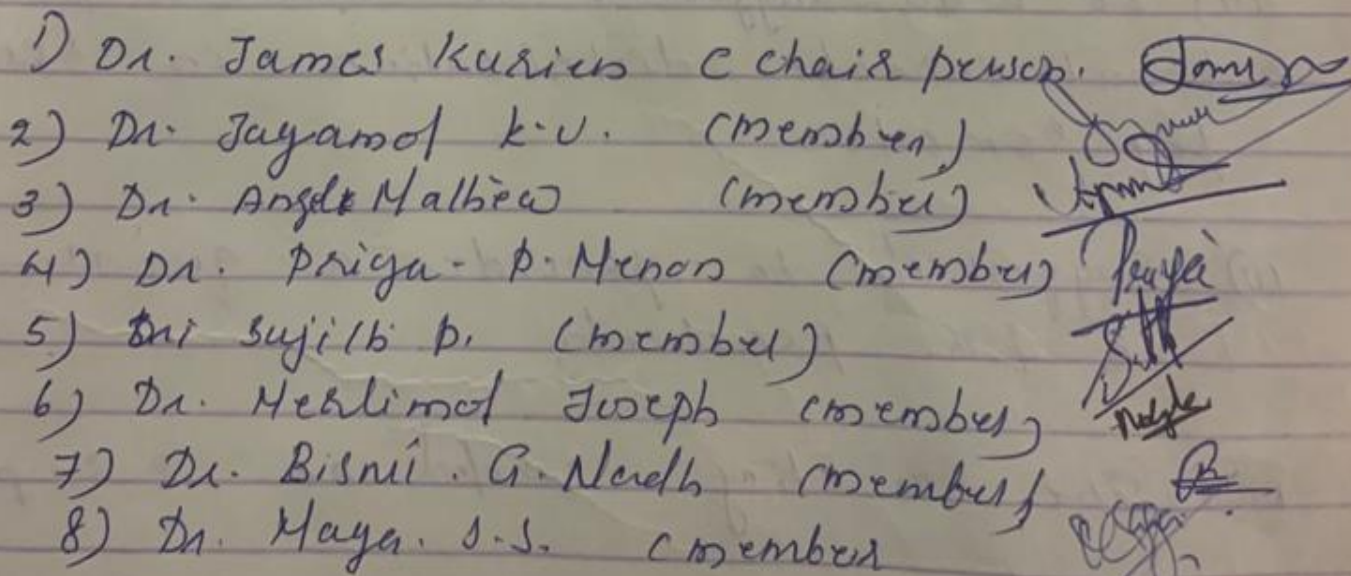 1) Dr. James Kurien (Chair person.
2) Dr. Jayamol K.U. (member)
3) Dr. Angel Mathew (member)
4) Dr. Priya. P. Menon (member) Priya
5) Sri Sujith P. (member)
6) Dr. Merlimol Joseph (member)
7) Dr. Bismi. G. Nadh (member)
8) Dr. Maya. S.S. (member